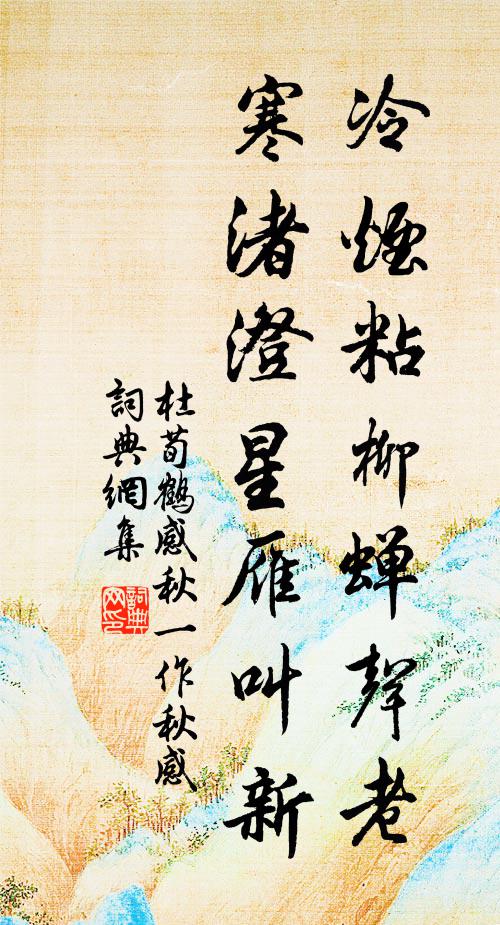 冷煙粘柳蟬聲老
寒渚澄星雁叫新
杜荀鶴感秋一作秋感
詞典網集
詞典網印